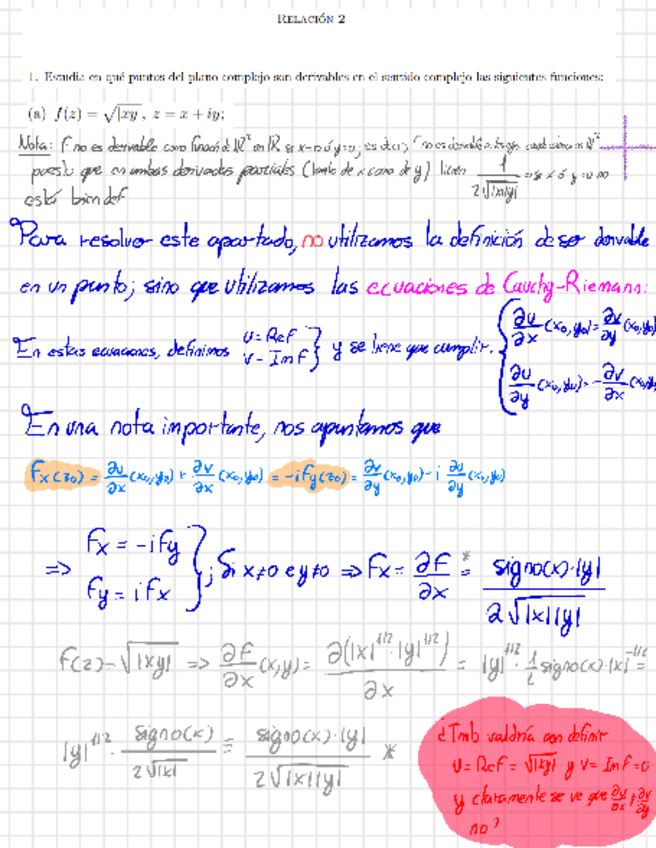 RELACIÓN 2
1. Estudia en qué puntos del plano complejo son derivables en el sentido complejo las siguientes funciones:
(a) f(z) = √|xy|, z = x + iy;
Nota: f no es derivable como función de ℝ² en ℝ si x=0 ó y=0; es decir,
puesto que en ambas derivadas parciales (tanto de x como de y) tienen 1/(2√|x||y|) si x ó y = 0 no
está bien def
Para resolver este apartado, no utilizamos la definición de ser derivable
en un punto; sino que utilizamos las ecuaciones de Cauchy-Riemann:
En estas ecuaciones, definimos u=Ref v=Imf } y se tiene que cumplir. { ∂u/∂x (x₀,y₀) = ∂v/∂y (x₀,y₀)
∂u/∂y (x₀,y₀) = -∂v/∂x (x₀,y₀)
En una nota importante, nos apuntamos que
fx(z₀) = ∂u/∂x (x₀,y₀) + ∂v/∂x (x₀,y₀) = -ify(z₀) = ∂v/∂y (x₀,y₀) - i ∂u/∂y (x₀,y₀)
=> fx = -ify fy = ifx } ; Si x≠0 e y≠0 => fx = ∂f/∂x =* signo(x)·|y| / 2√|x||y|
f(z) = √|xy| => ∂f/∂x (x,y) = ∂(|x|^1/2 · |y|^1/2)/∂x = |y|^1/2 · 1/2 signo(x)·|x|^-1/2 =
|y|^1/2 · signo(x)/2√|x| = signo(x)·|y| / 2√|x||y| *
¿Tmb valdría con definir
u = Ref = √|xy| y v = Imf = 0
y claramente se ve que ∂u/∂x ≠ ∂v/∂y
no?